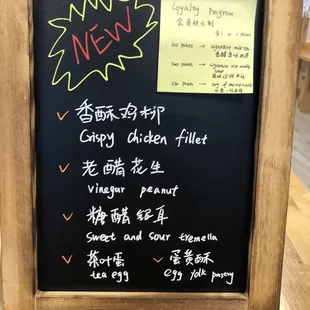 NEW
Loyalty Program
会员积分制
$1 = 1 point
香酥鸡柳
Crispy chicken fillet
老醋花生
vinegar peanut
糖醋银耳
sweet and sour tremella
茶叶蛋
tea egg
蛋黄酥
egg yolk pastry